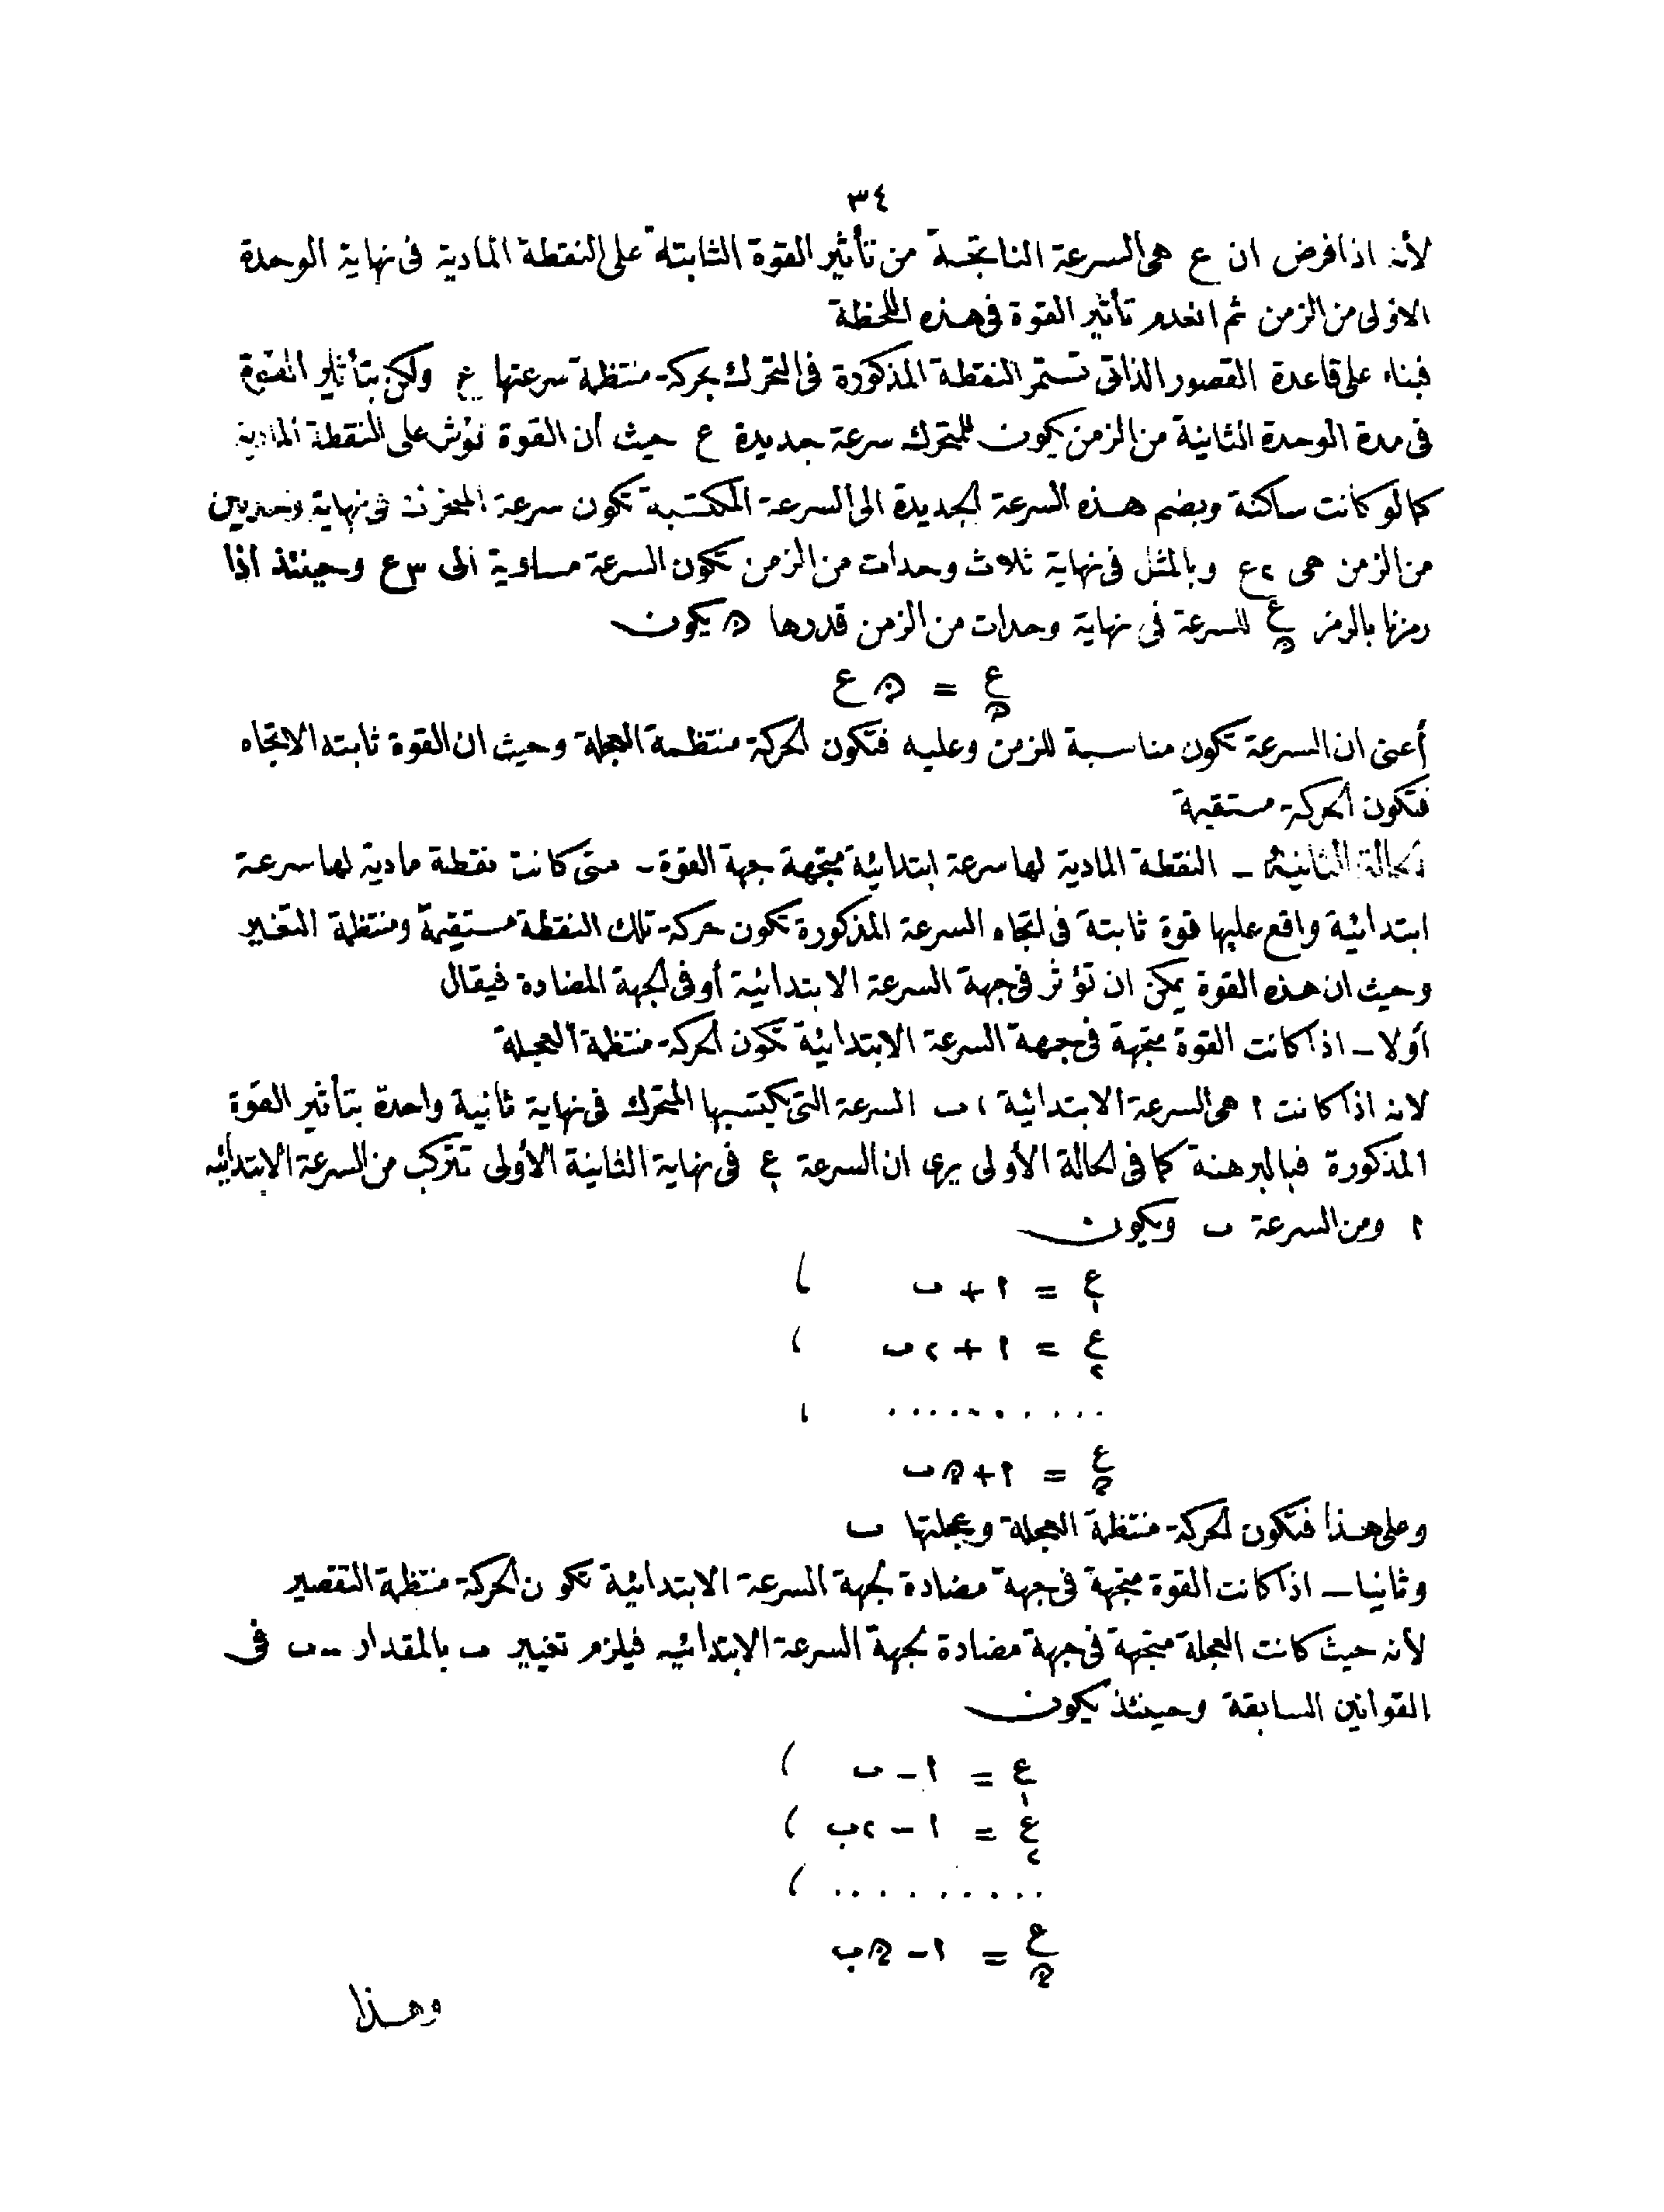 ٣٤
لأنه اذا فرض ان ع هى السرعة الناتجة من تأثير القوة الثابتة على النقطة المادية فى نهاية الوحدة
الاولى من الزمن ثم انعدم تأثير القوة فى هذه اللحظة
فبناء على قاعدة القصور الذاتى تستمر النقطة المذكورة فى التحرك بحركة منتظمة سرعتها ع ولكن بتأثير القوة
فى مدة الوحدة الثانية من الزمن يكون للمتحرك سرعة جديدة ع حيث أن القوة تؤثر على النقطة المادية
كما لو كانت ساكنة وبضم هذه السرعة الجديدة الى السرعة المكتسبة تكون سرعة المتحرك فى نهاية وحدتين
من الزمن هى ٢ع وبالمثل فى نهاية ثلاث وحدات من الزمن تكون السرعة مساوية الى ٣ع وحينئذ اذا
رمزنا بالرمز ع_ن للسرعة فى نهاية وحدات من الزمن قدرها ن يكون
ع_ن = ن ع
أعنى ان السرعة تكون مناسبة للزمن وعليه فتكون الحركة منتظمة العجلة وحيث ان القوة ثابته الاتجاه
فتكون الحركة مستقيمة
الحالة الثانية ـ النقطة المادية لها سرعة ابتدائية متجهة جهة القوة ـ متى كانت نقطة مادية لها سرعة
ابتدائية واقع عليها قوة ثابتة فى اتجاه السرعة المذكورة تكون حركة تلك النقطة مستقيمة ومنتظمة التغير
وحيث ان هذه القوة يمكن ان تؤثر فى جهة السرعة الابتدائية أو فى الجهة المضادة فيقال
أولا ـ اذا كانت القوة متجهة فى جهة السرعة الابتدائية تكون الحركة منتظمة العجلة
لانه اذا كانت ا هى السرعة الابتدائية ، ب السرعة التى يكتسبها المتحرك فى نهاية ثانية واحدة بتأثير القوة
المذكورة فبالبرهنة كما فى الحالة الأولى يرى ان السرعة ع_١ فى نهاية الثانية الأولى تتركب من السرعة الابتدائيه
ا ومن السرعة ب ويكون
ع_١ = ا + ب ،
ع_٢ = ا + ٢ب ،
.......... ،
ع_ن = ا + ن ب
وعلى هذا فتكون الحركة منتظمة العجلة وعجلتها ب
وثانيا ـ اذا كانت القوة متجهة فى جهة مضادة لجهة السرعة الابتدائية تكون الحركة منتظمة التقصير
لأنه حيث كانت العجلة متجهة فى جهة مضادة لجهة السرعة الابتدائيه فيلزم تغيير ب بالمقدار -ب فى
القوانين السابقة وحينئذ يكون
ع_١ = ا - ب ،
ع_٢ = ا - ٢ب ،
......... ،
ع_ن = ا - ن ب
وهذا